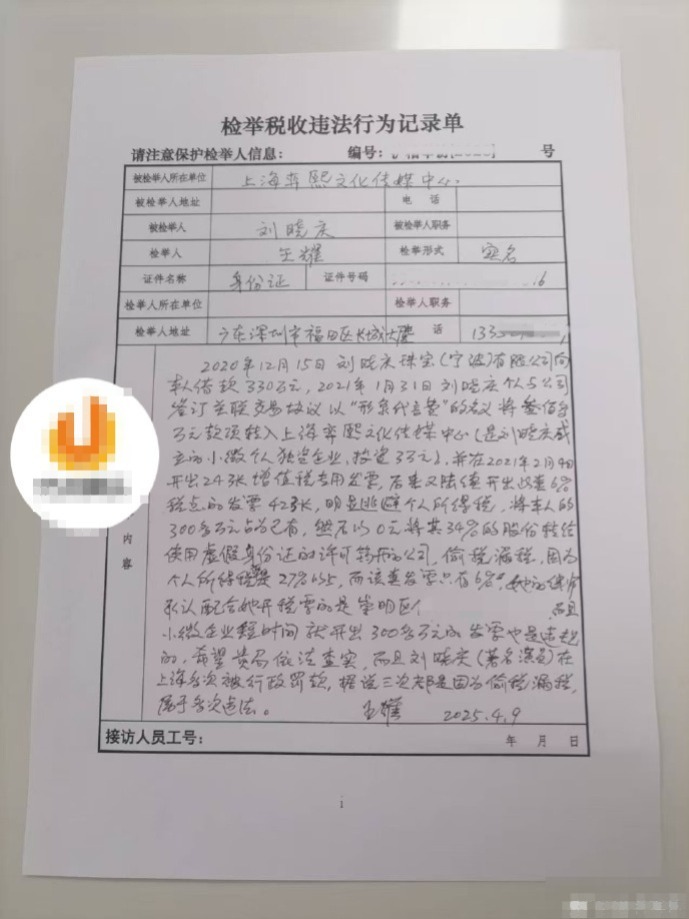 检举税收违法行为记录单
请注意保护检举人信息： 编号： 号
被检举人所在单位 上海弈熙文化传媒中心.
被检举人地址 电 话
被检举人 刘晓庆 被检举人职务
检举人 王耀 检举形式 实名
证件名称 身份证 证件号码 16
检举人所在单位 检举人职务
检举人地址 广东深圳市福田区长城大厦 话 133
内容
2020年12月15日刘晓庆珠宝(宁波)有限公司向
本人借款330万元，2021年1月31日刘晓庆个人与公司
签订关联交易协议以“形象代言费”的名义将叁佰多
万元款项转入上海弈熙文化传媒中心(是刘晓庆成
立的小微个人独资企业，投资3万元)，并在2021年2月4日
开出24张增值税专用发票，后来又陆续开出这套6%
税点的发票42张，明显逃避个人所得税，将本人的
300多万元占为己有，然后以0元将其34%的股份转给
使用虚假身份证的许可 的公司，偷税漏税，因为
个人所得税是 而该套发票只有6%，她的律师
承认配合她开税票的是崇明区 而且
小微企业短时间就开出300多万元的发票也是违规
的，希望贵局依法查实，而且刘晓庆(著名演员)在
上海多次被行政罚款，据说三次都是因为偷税漏税，
属于多次违法。 王耀 2025.4.9
接访人员工号： 年 月 日
1